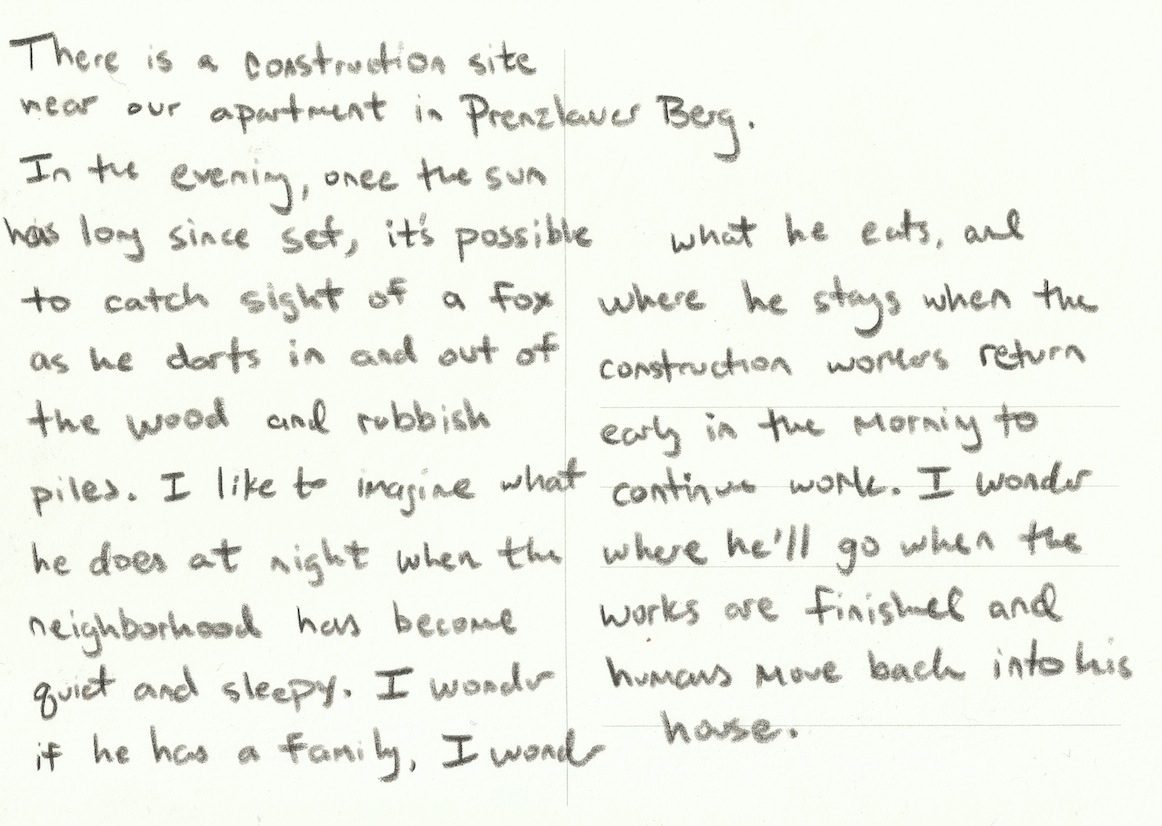 There is a construction site
near our apartment in Prenzlauer Berg.
In the evening, once the sun
has long since set, it's possible
to catch sight of a fox
as he darts in and out of
the wood and rubbish
piles. I like to imagine what
he does at night when the
neighborhood has become
quiet and sleepy. I wonder
if he has a family, I wonder
what he eats, and
where he stays when the
construction workers return
early in the morning to
continue work. I wonder
where he'll go when the
works are finished and
humans move back into his
house.